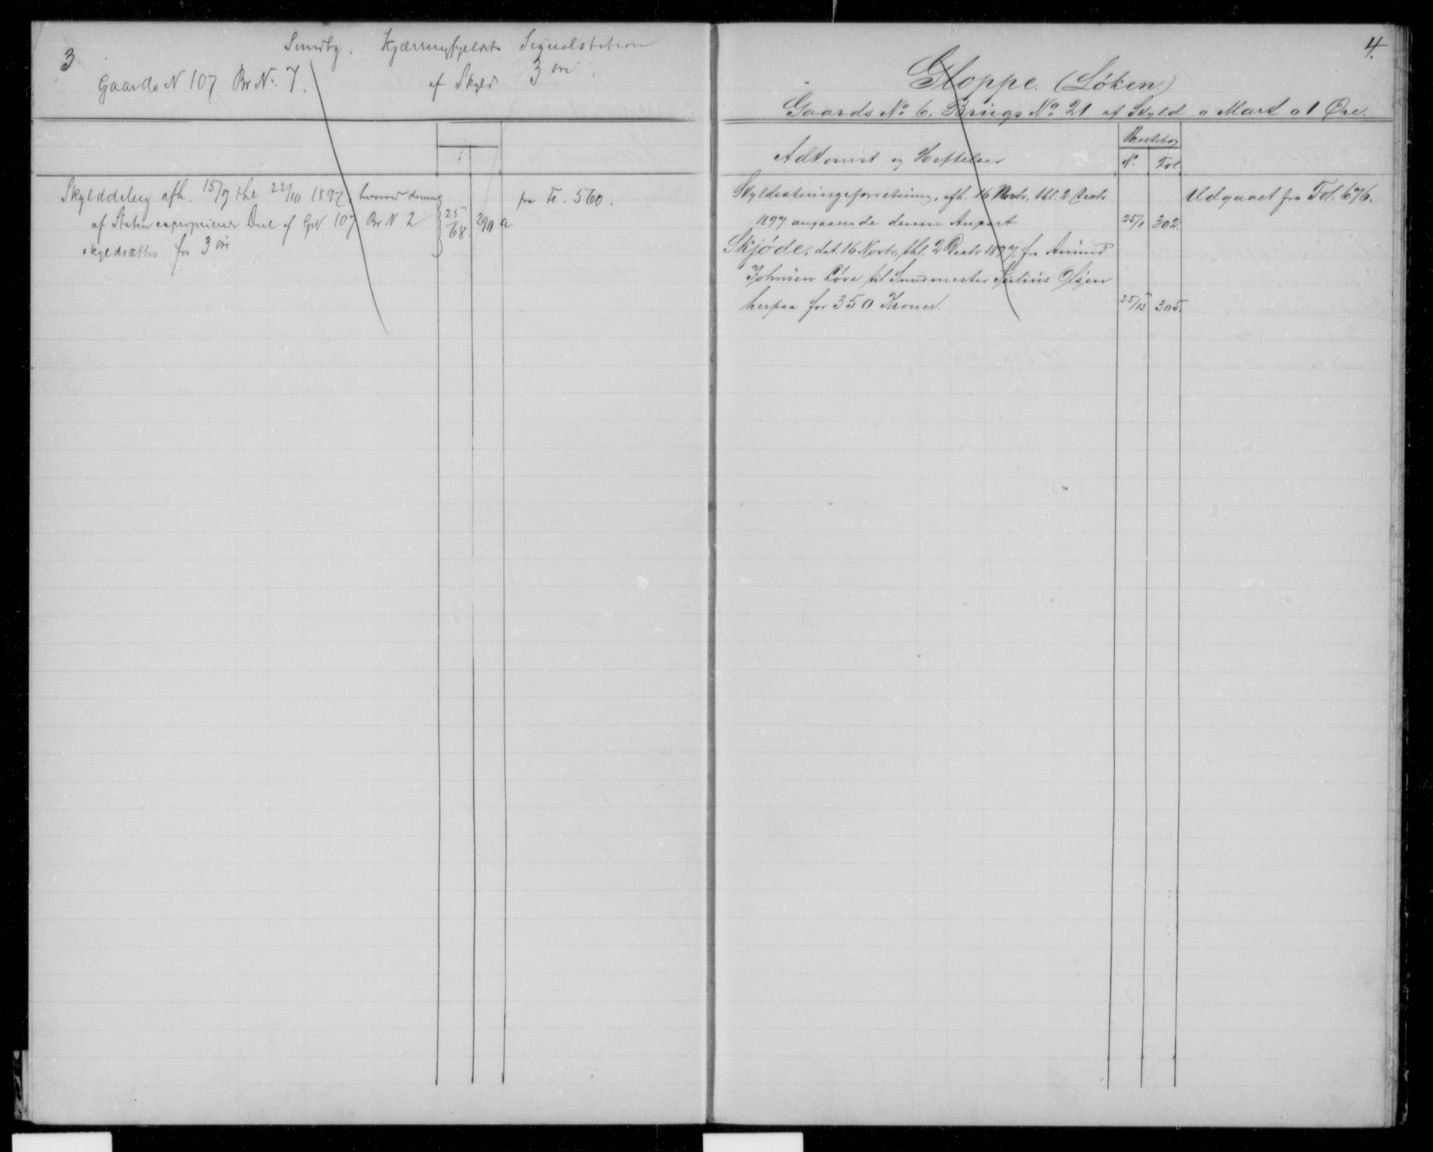 3
Sundby. Kjærringfjeldets Signalstation
Gaards N 107 Br No. 7. af Skyld 3 øre
Skylddeling afh. 15/9 thl. 22/10 1897 hvorved denne
af Staten exproprierede Deel af GN 107 Br N 2
skyldsættes for 3 øre
25/68. 290 a
fra Fo. 560.
4.
Gloppe. (Löken.)
Gaards No 6. Brugs No 21 af Skyld 0 Mark 01 Øre.
Adkomst og Heftelser
Pantebog
No. Fol.
Skyldsætningsforretning, afh. 16 Novbr. thl. 2 Decbr.
1897 angaaende denne Anpart 25/1 302.
Udgaaet fra Fol. 676.
Skjöde, dat. 16 Novbr, thl. 2 Decbr 1897, fra Amund
Johnsen Løve til Smedmester Julius Olsen
herpaa for 350 Kroner. 25/15 305.